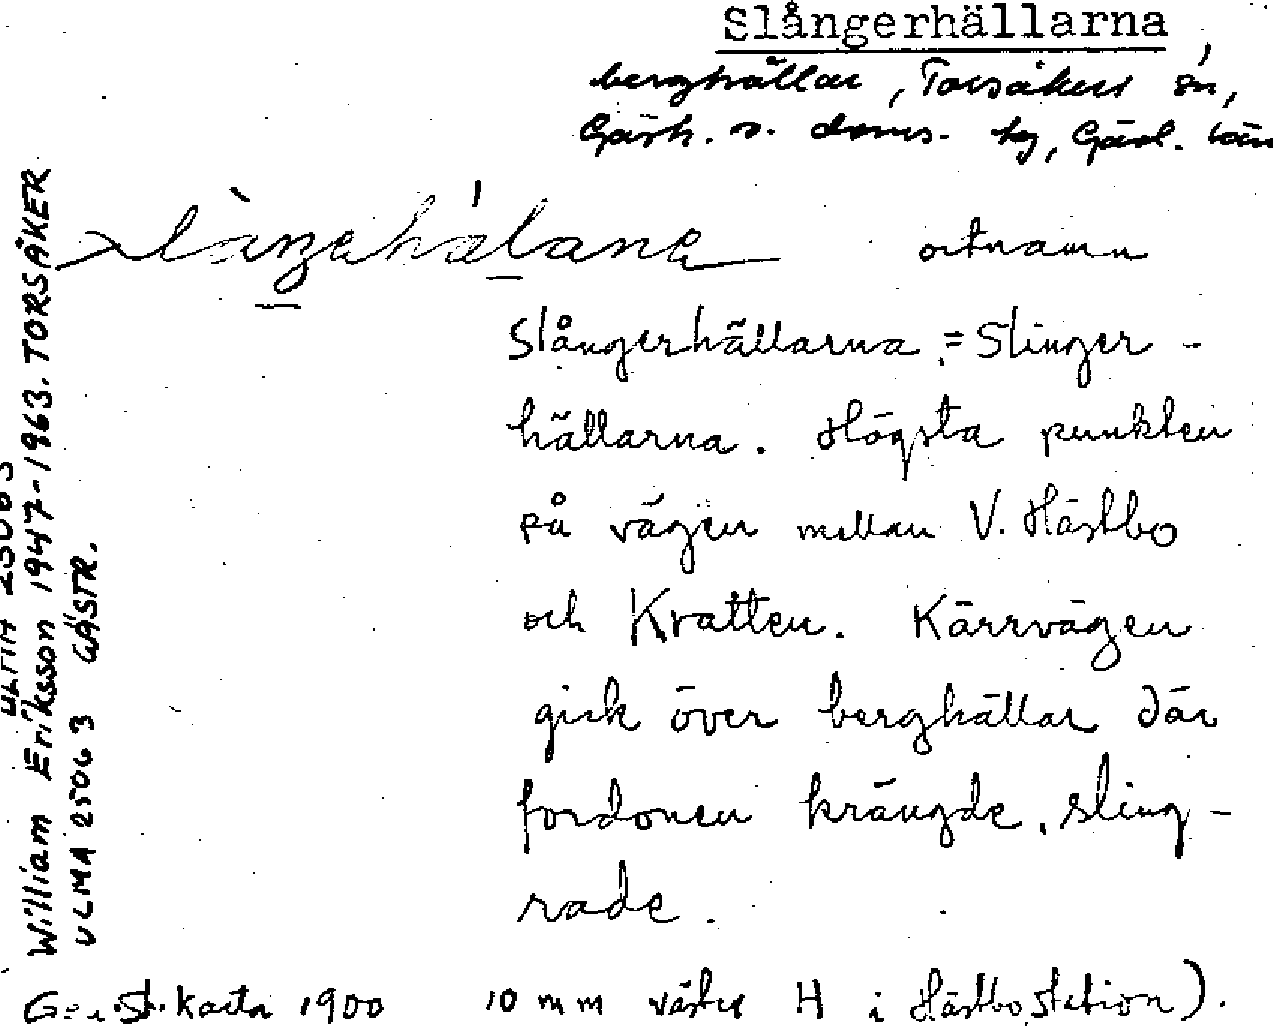 Slångerhällarna,
berghällar, Torsåkers sn,
Gästr. ö. doms. hg, Gävl. län
ortnamn
Slångerhällarna = Slinger-
hällarna. Högsta punkten
på vägen mellan V. Hästbo
och Kratten. Kärrvägen
gick över berghällar där
fordonen krängde, sling-
rade.
Gen. St. karta 1900 10 mm väster H i Hästbo station).
ULMA 25063
William Eriksson 1947-1963. TORSÅKER
ULMA 25063 GÄSTR.